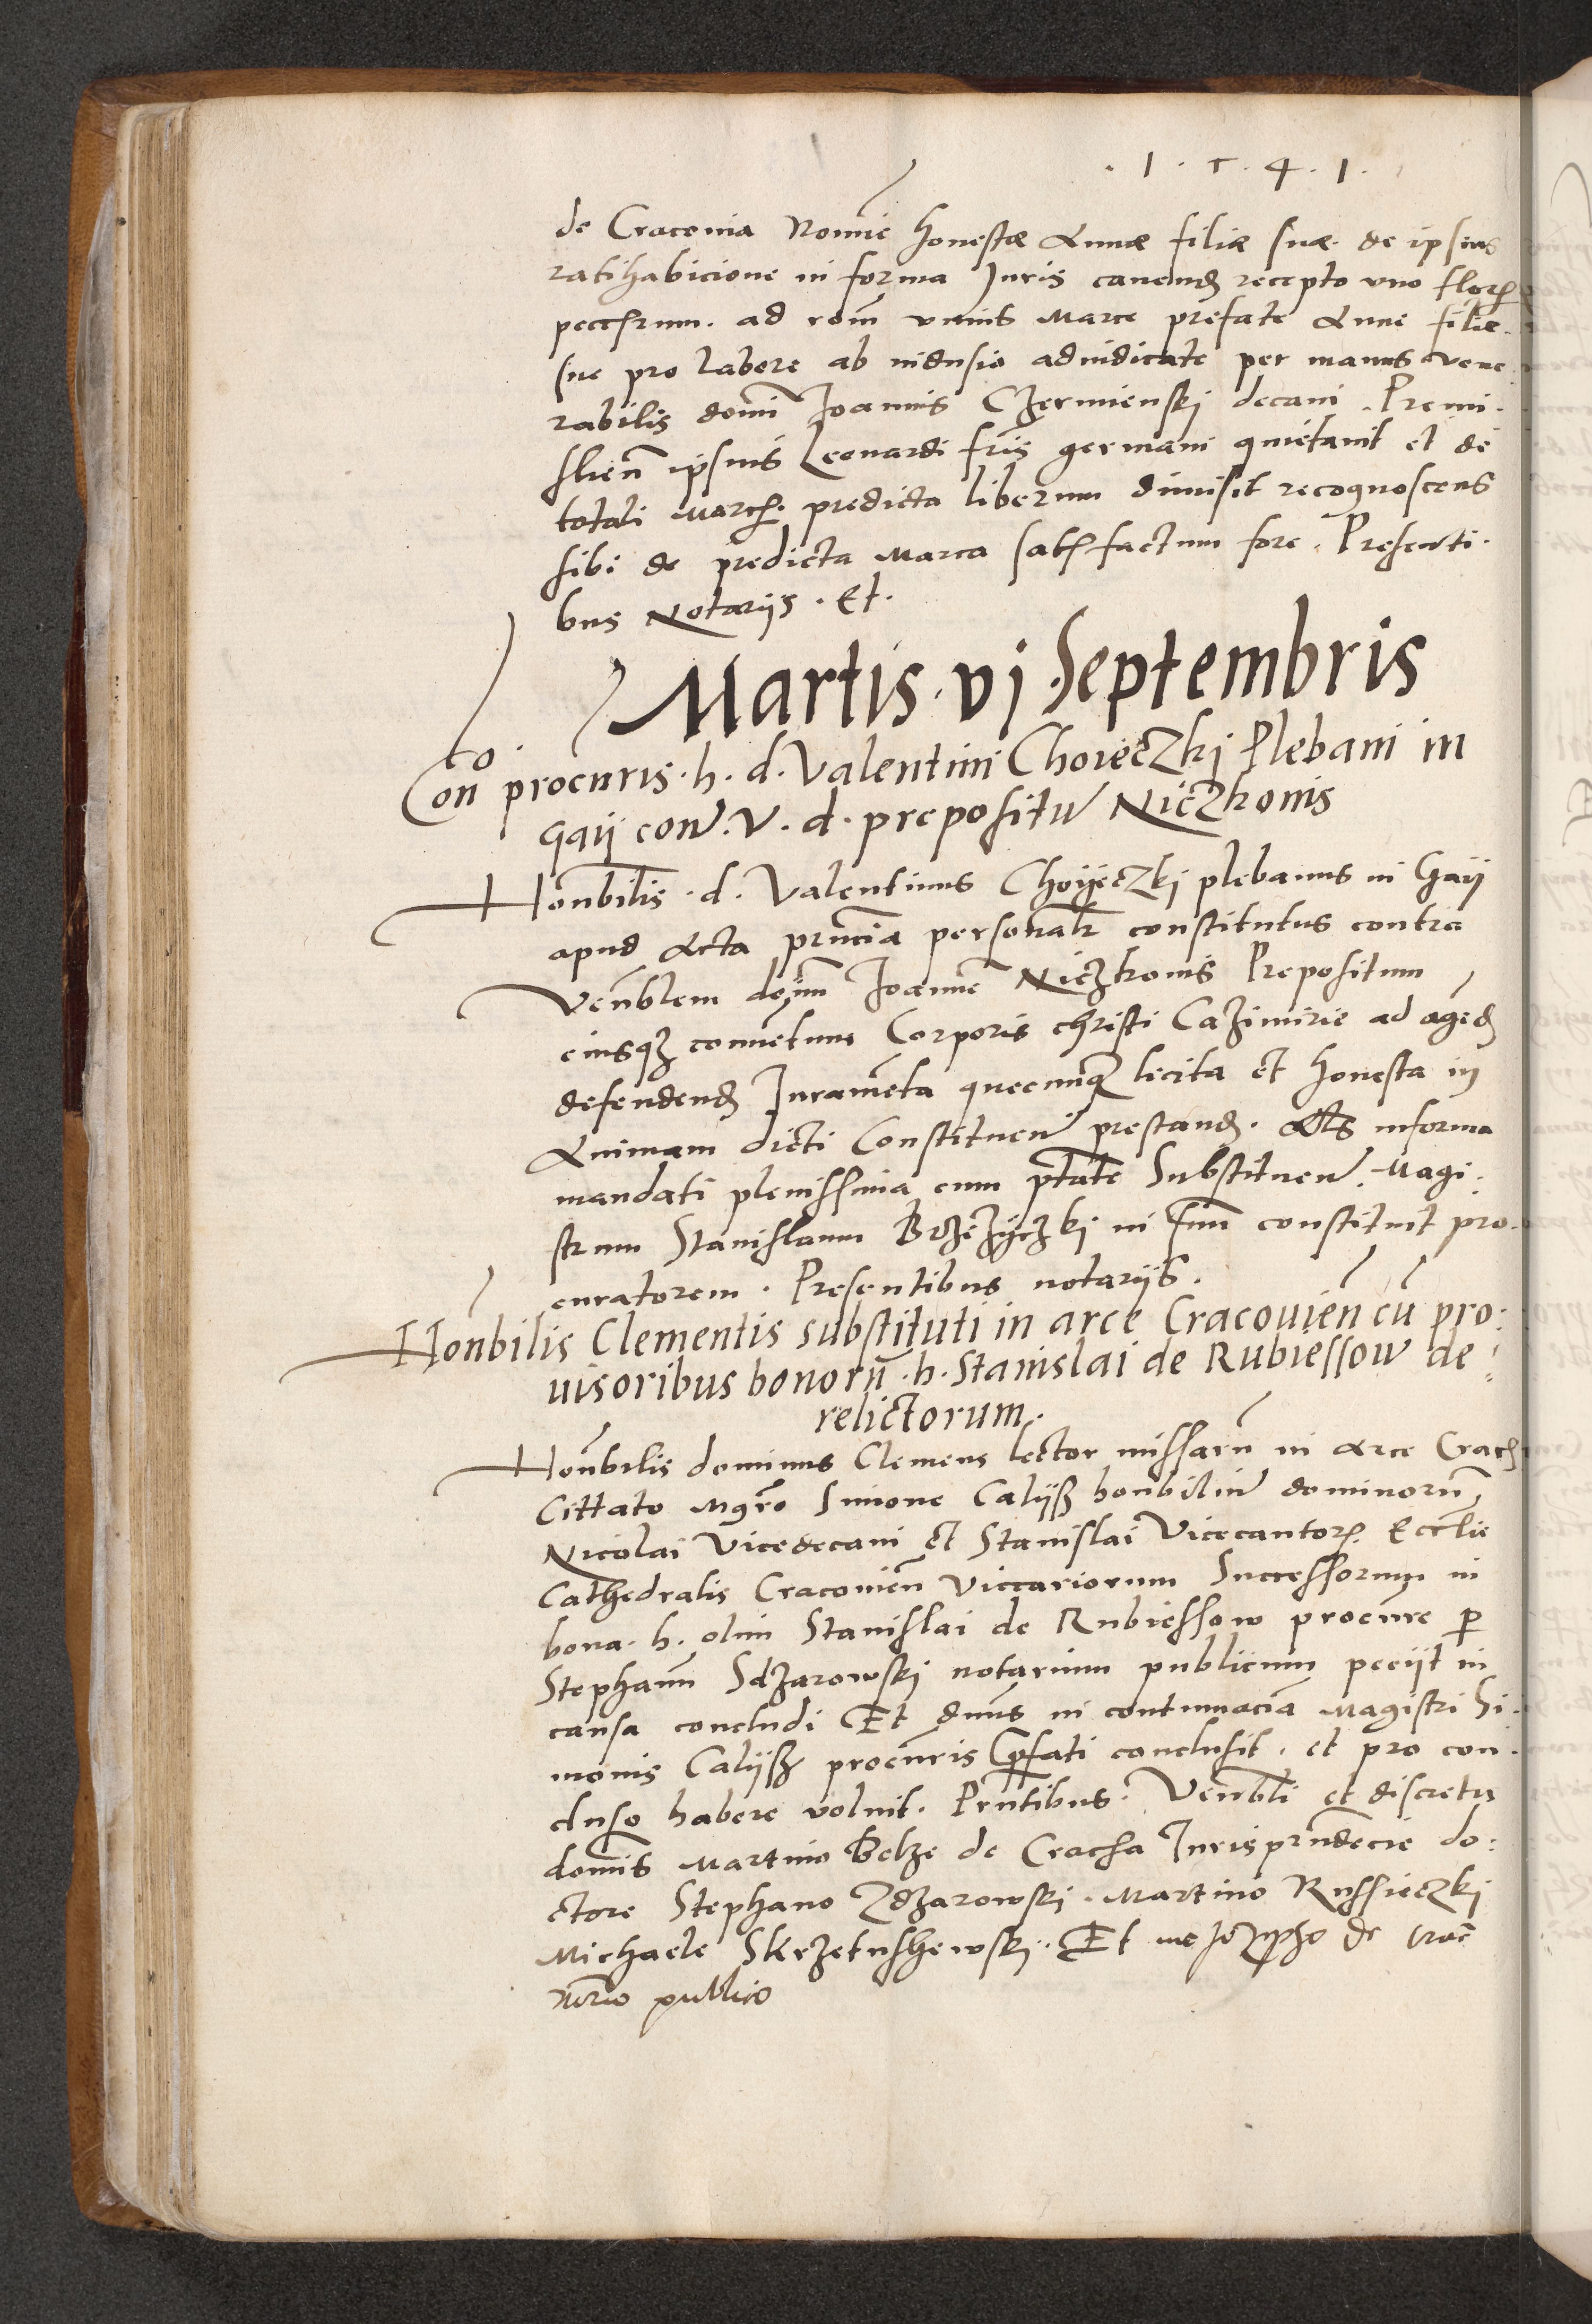 . 1 . 5 . 4 . 1 .
de Cracovia Nomīe honestæ Annæ filiæ suæ de ipsius
ratihabicione in forma Iuris cavend recepto uno flor
ad rōm unius Marce prefate Anne filie
sue pro labore ab adiudicate per manus vene
rabilis domī Ioannis Czermienski decani . Premi .
slien̄ ipsius Leonardi frīs germani quietavit et de
totali Marc. predicta liberum dimisit recognoscens
sibi de predicta Marca satisfactum fore . Presenti .
bus Notarijs . Et .
Martis . vj . Septembris
Con̄o procuris . h . d . Valentini Choieczkj Plebani in
Gaij con . V . d . prepositu Niczkonis
Honbilis . d . Valentinus Choijeczkj plebanus in Gaij
apud Acta prncia personalr constitutus contra
Venblem domm Ioannem Niczkonis Prepositum
eiusqz convētum Corporis christi Cazimirie ad agēd
defendend Iuramēta quecunqz licita et honesta in
Animam dicti Constituen prestand . Als in forma
mandati plenissima cum ptate Substituen . Magi .
strum Stanislaum Brzezyczkj in suū constituit pro .
curatorem . Presentibus notarijs .
Honbilis Clementis substituti in arce Cracouien cū pro :
uisoribus bonorū . h . Stanislai de Rubiessow de :
relictorum .
Honbilis dominus Clemens lector missarū in arce Crac
Cittato Mgro Simone Calijsz honbiliu dominorū
Nicolai Vicedecani et Stanislai Vicecantor Ecclie
Cathedralis Cracovien̄ Viccariorum Successorum in
bona . h . olim Stanislai de Rubiessow procure p
Stephanū Sdzarowski notarium publicum peciit in
causa concludi Et dnus in contumaciā Magistri Si .
monis Calijsz procuris pfati conclusit . et pro con .
cluso habere voluit . Prntibus . Venbli et discretis
domīs Martino Belze de Cracovia Iurisprudēcie do :
ctore Stephano Zdzarowski . Martino Russieczkj
Michaele Skrzetushewski . Et me de Crac̄
norio publico